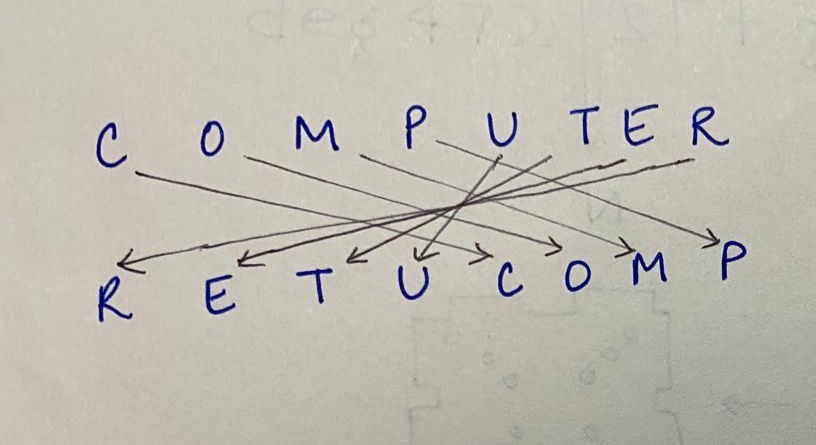 C O M P U T E R
R E T U C O M P